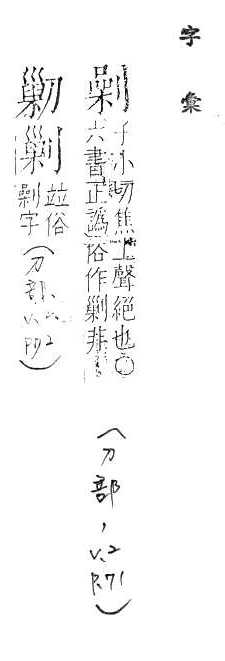 字彙
剿
子小切焦上聲絕也○
六書正譌俗作剿非
(刀部,V.2 P.71)
勦剿
竝俗
剿字
(刀部,V.2 P.72)